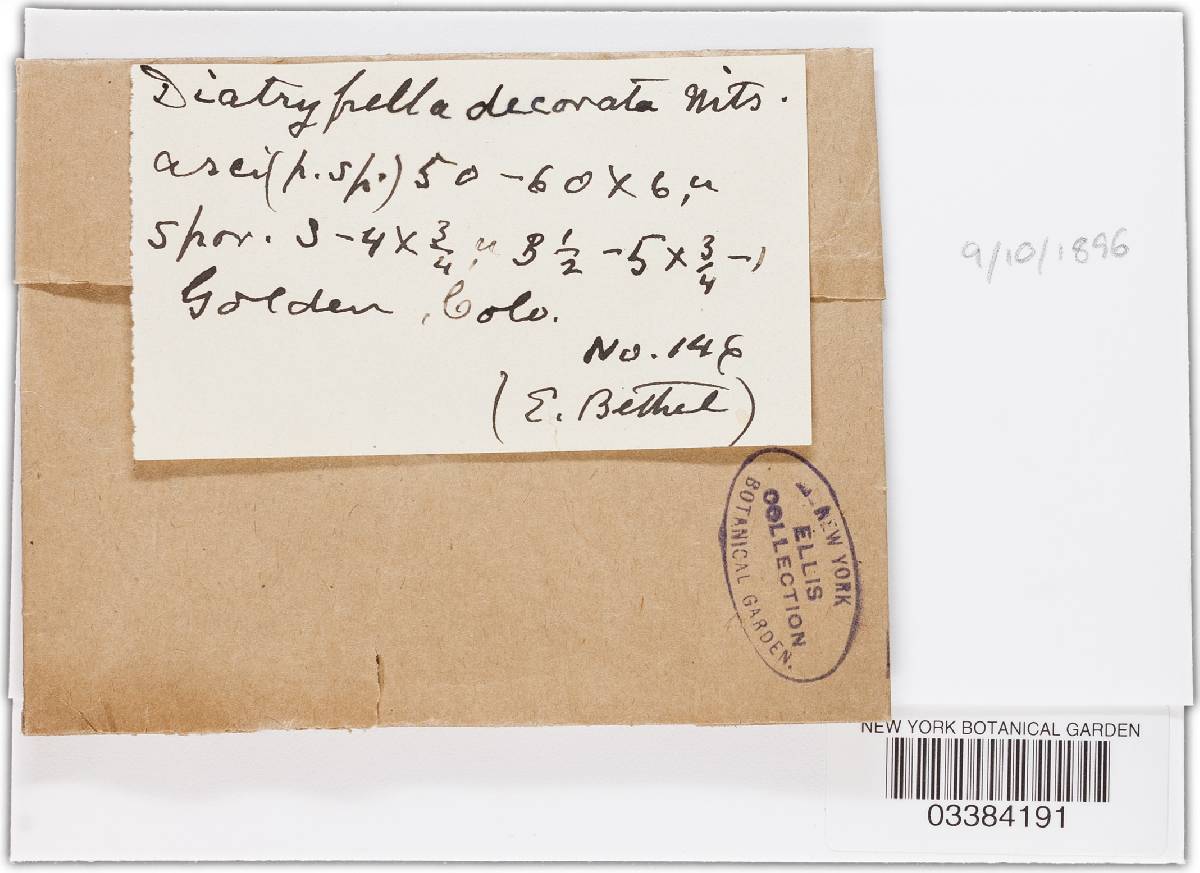 Diatrypella decorata Nits.
asci (p.sp.) 50-60 x 6 µ
spor. 3-4 x 3/4 µ 3 1/2 - 5 x 3/4 - 1
Golden, Colo.
No. 146
(E. Bethel)
9/10/1896
NEW YORK
ELLIS
COLLECTION
BOTANICAL GARDEN.
NEW YORK BOTANICAL GARDEN
03384191